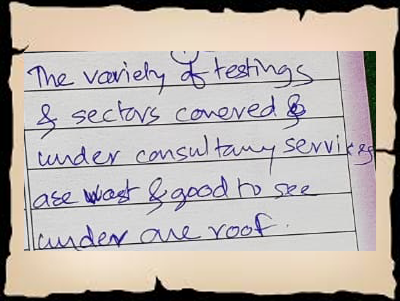 The variety of testings
& sectors covered &
under consultancy services
are vast & good to see
under one roof.